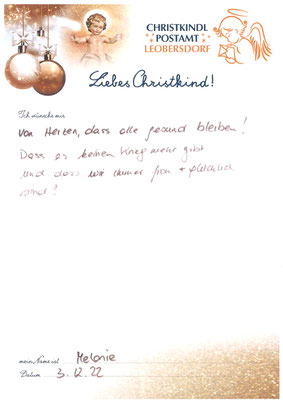 CHRISTKINDL
POSTAMT
LEOBERSDORF
Liebes Christkind!
Ich wünsche mir
von Herzen, dass alle gesund bleiben!
Dass es keinen Krieg mehr gibt
und dass wir immer froh + glücklich
sind!
mein Name ist Melanie
Datum 3.12.22